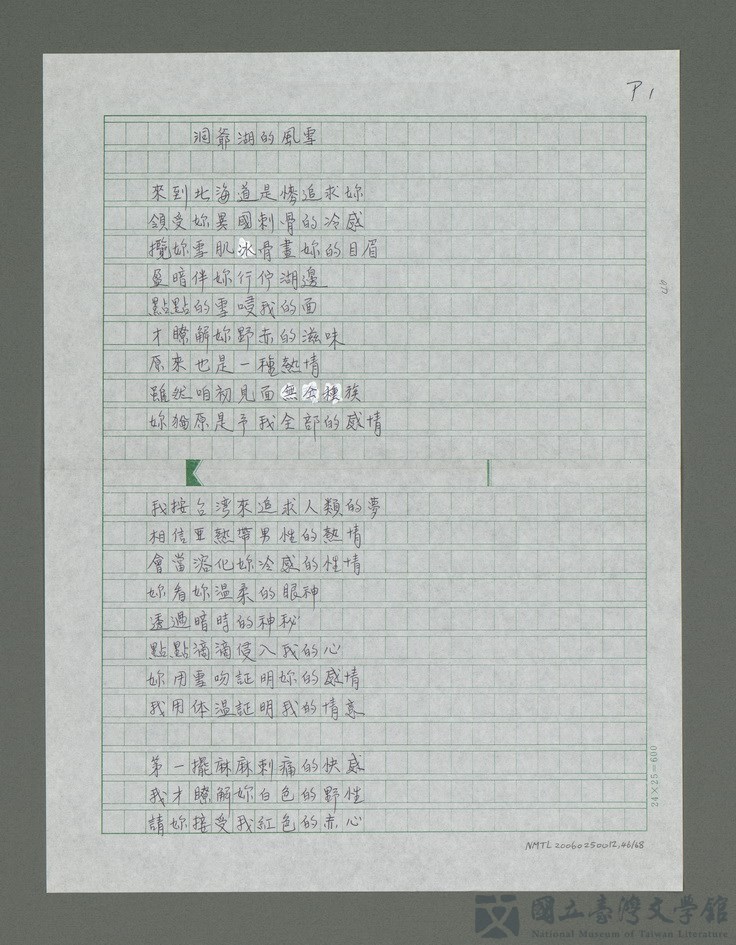 P1
洞爺湖的風雪
來到北海道是慘追求妳
領受妳異國刺骨的冷感
攬妳雪肌冰骨畫妳的目眉
盈暗伴妳行佇湖邊
點點的雪唚我的面
才瞭解妳野赤的滋味
原來也是一種熱情
雖然咱初見面無仝種族
妳猶原是予我全部的感情
我按台湾來追求人類的夢
相信亜熱帶男性的熱情
會當溶化妳冷感的性情
妳看妳溫柔的眼神
透過暗時的神秘
點點滴滴侵入我的心
妳用雪吻証明妳的感情
我用体溫証明我的情意
第一擺麻麻刺痛的快感
我才瞭解妳白色的野性
請妳接受我紅色的赤心
24×25=600
NMTL20060250012.46/68
國立臺灣文學館
National Museum of Taiwan Literature